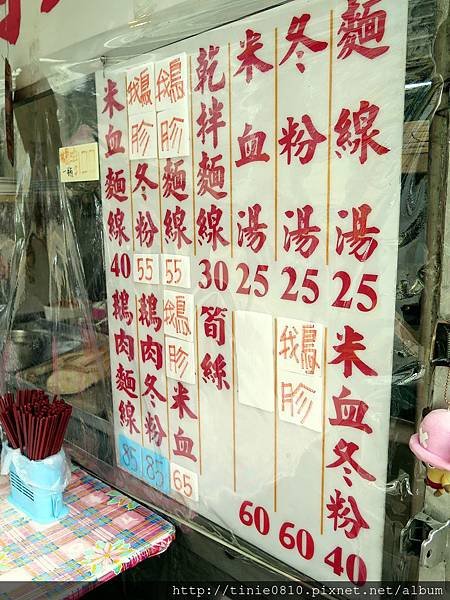 麵線湯 25
冬粉湯 25
米血湯 25
乾拌麵線 30
鵝胗麵線 55
鵝胗冬粉 55
米血麵線 40
米血冬粉 40
鵝胗 60
60
筍絲
鵝胗米血 65
鵝肉冬粉 85
鵝肉麵線 85
http://tinie0810.pixnet.net/album